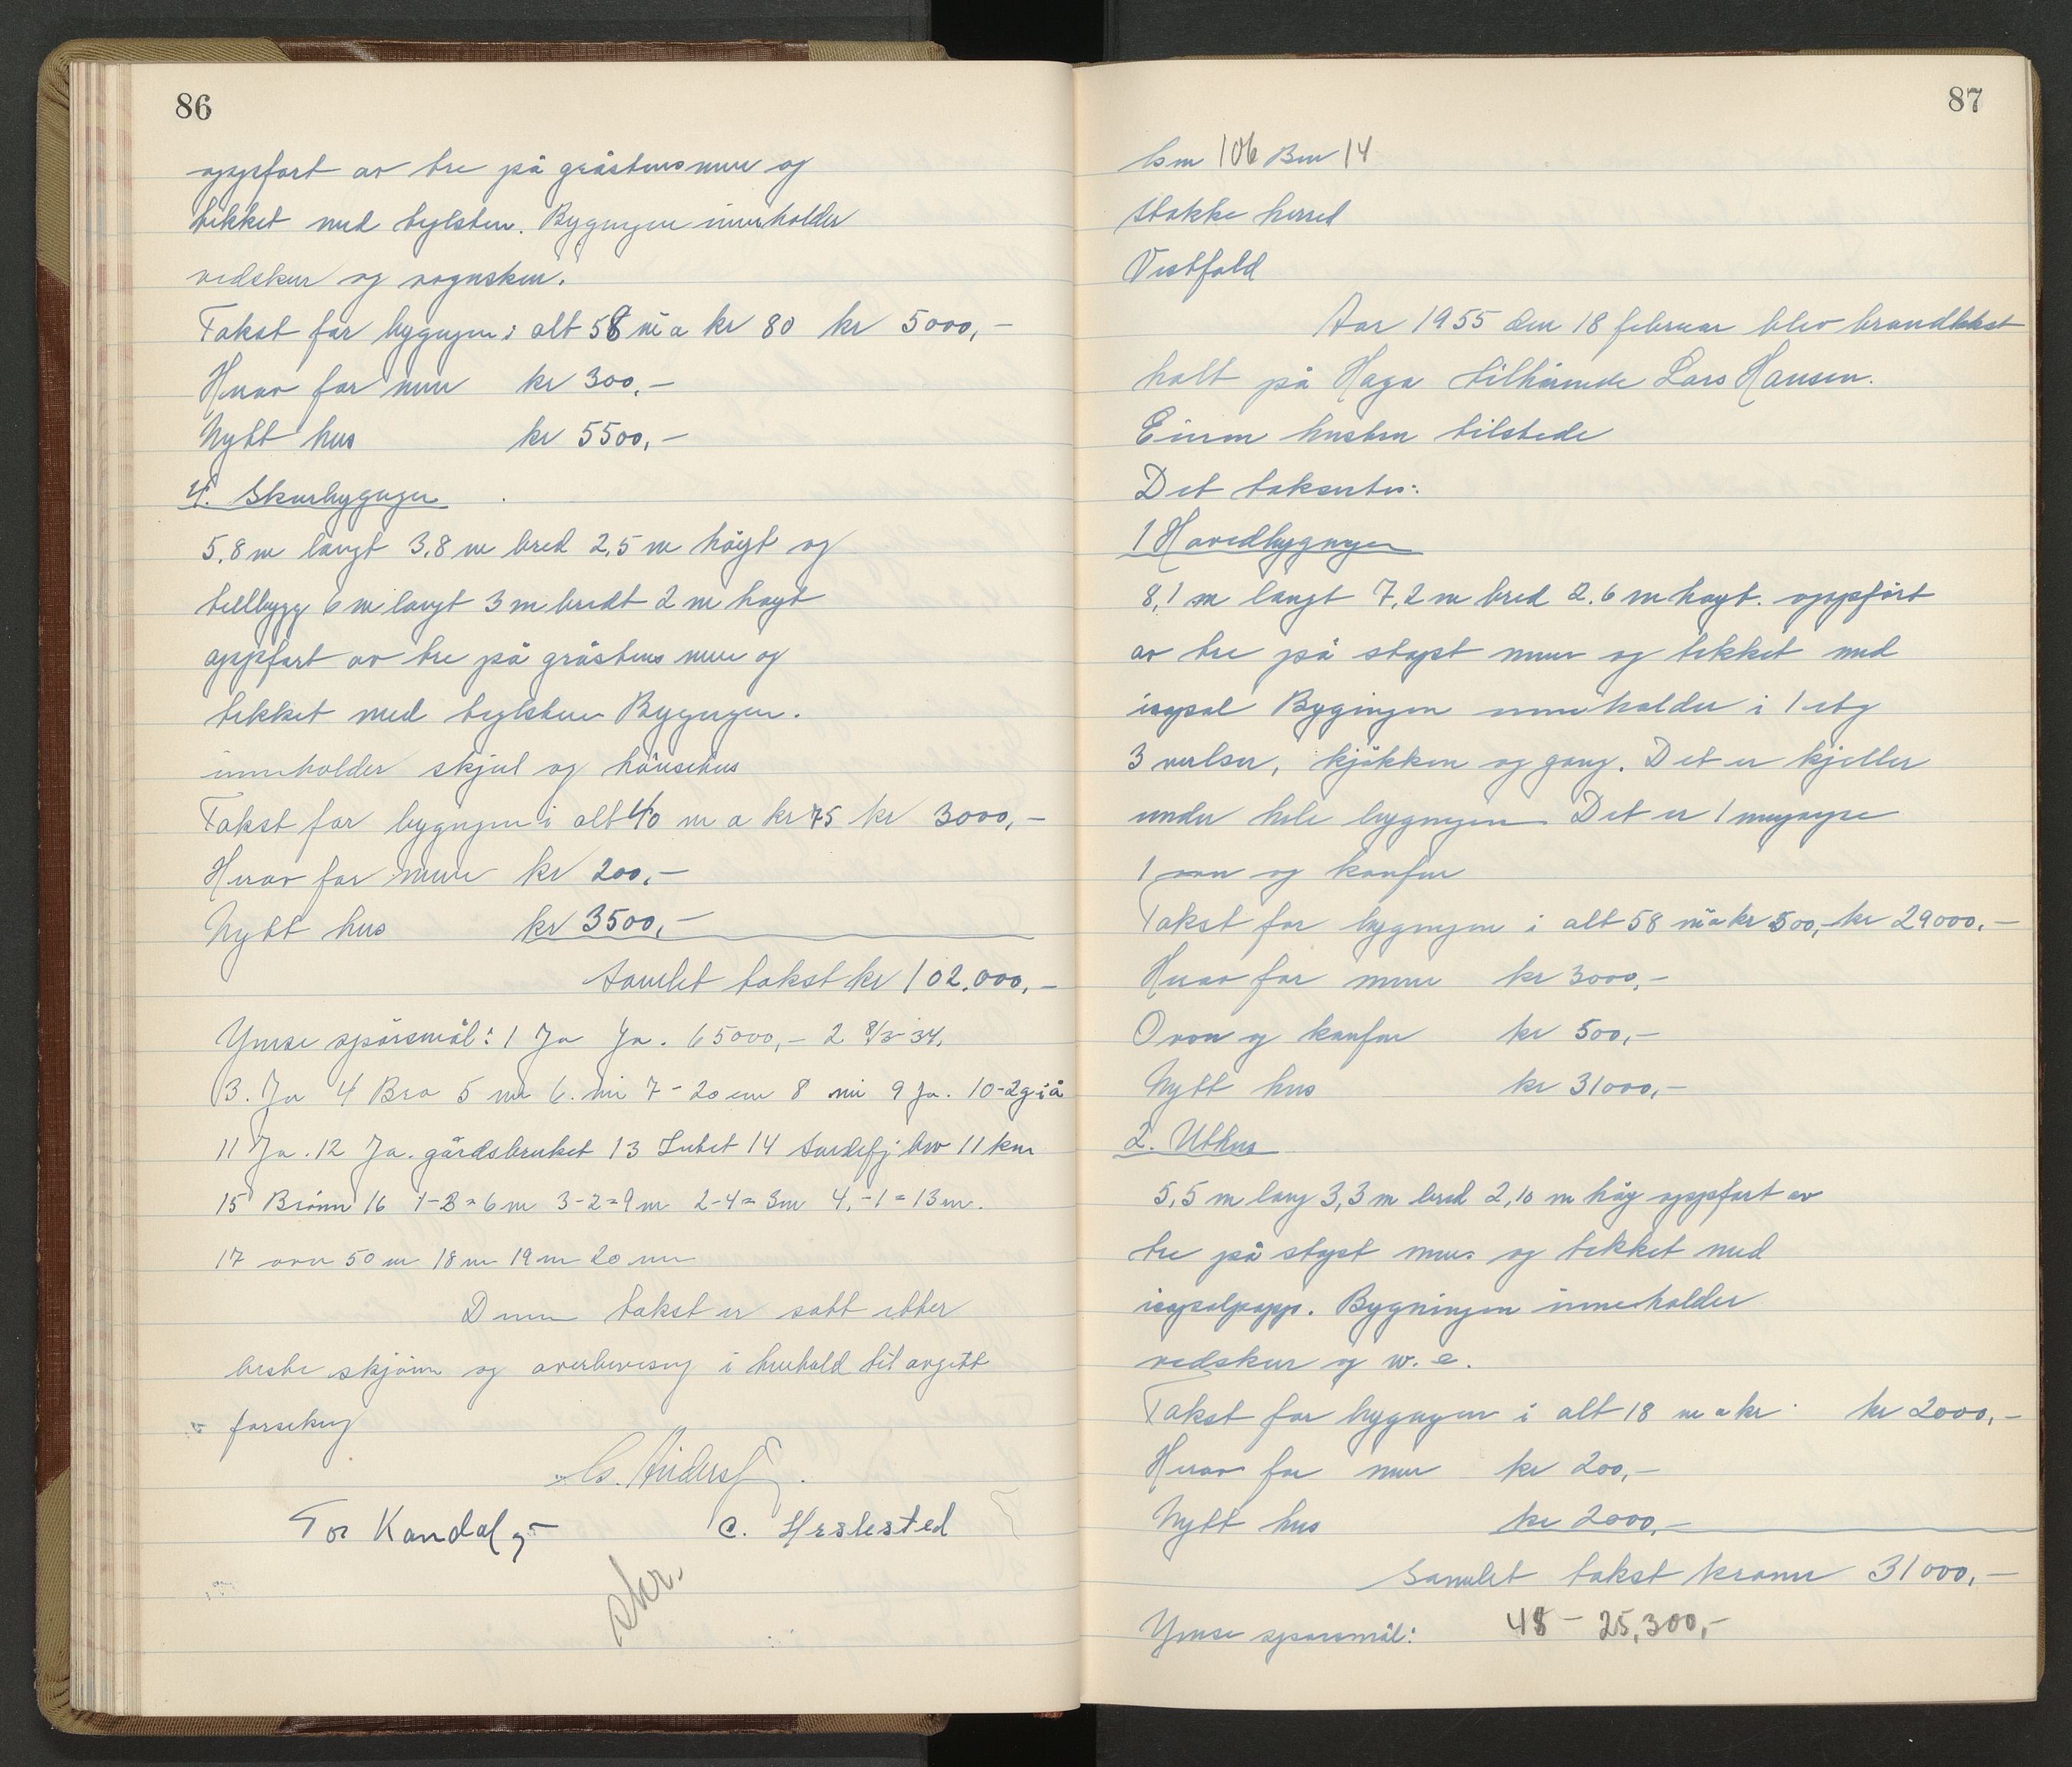 86
oppført av tre på gråstensmur og
tekket med teglsten. Bygngen inneholder
vedskur og vognskur.
Takst for bygngen i alt 58 m² a kr 80 kr 5000,-
Herav for mur kr 300,-
Nytt hus kr 5500,-
4. Skurbygngen
5,8 m langt 3,8 m bred 2,5 m höyt og
tillbygg 6 m langt 3 m bredt 2 m høyt
oppført av tre på gråstens mur og
tekket med teglsten Bygngen.
inneholder skjul og hönsehus
Takst for bygngen i alt 40 m a kr 75 kr 3000,-
Herav for mur kr 200,-
Nytt hus kr 3500,-
Samlet takst kr 102.000,-
Ymse spörsmål: 1 Ja Ja. 65000,- 2 8/3-34.
3. Ja 4 Bra 5 nei 6. nei 7- 20 cm 8 nei 9 Ja. 10-2 g i å
11 Ja. 12 Ja. gårdsbruket 13 Intet 14 Sandefj. brv 11 km
15 Brönn 16 1-3=6 m 3-2=9 m 2-4=3m 4,-1=13 m.
17 over 50 m 18 19 20
Denne takst er satt etter
beste skjönn og overbevisng i henhold til avgitt
forsikrng
Tor Kandal
skr.
87
Gnr 106 Bnr 14
Stokke herred
Vestfold
Aar 1955 den 18 februar blev brandtakst
holt på Haga tilhörende Lars Hansen.
Eieren husten tilstede
Det takserter:
1 Hovedbygngen
8,1 m langt 7,2 m bred 2.6 m høyt. oppfört
av tre på støpt mur og tekket med
isopal Bygingen inneholder i 1 etg
3 verlser, kjökken og gang. Det er kjeller
under hele bygngen Det er 1 murpipe
1 ovn og komfur
Takst for bygngen i alt 58 m² a kr 500,- kr 29000,-
Herav for mur kr 3000,-
Ovon og komfur kr 500,-
Nytt hus kr 31000,-
2. Uthus
5,5 m lang 3,3 m bred 2,10 m höy oppført av
tre på støpt mur og tekket med
isopalpapp. Bygningen inneholder
vedskur og w. c.
Takst for bygngen i alt 18 m a kr kr 2000,-
Herav for mur kr 200,-
Nytt hus kr 2000,-
Samlet takst kroner 31000,-
Ymse spørsmål: 48 - 25,300,-